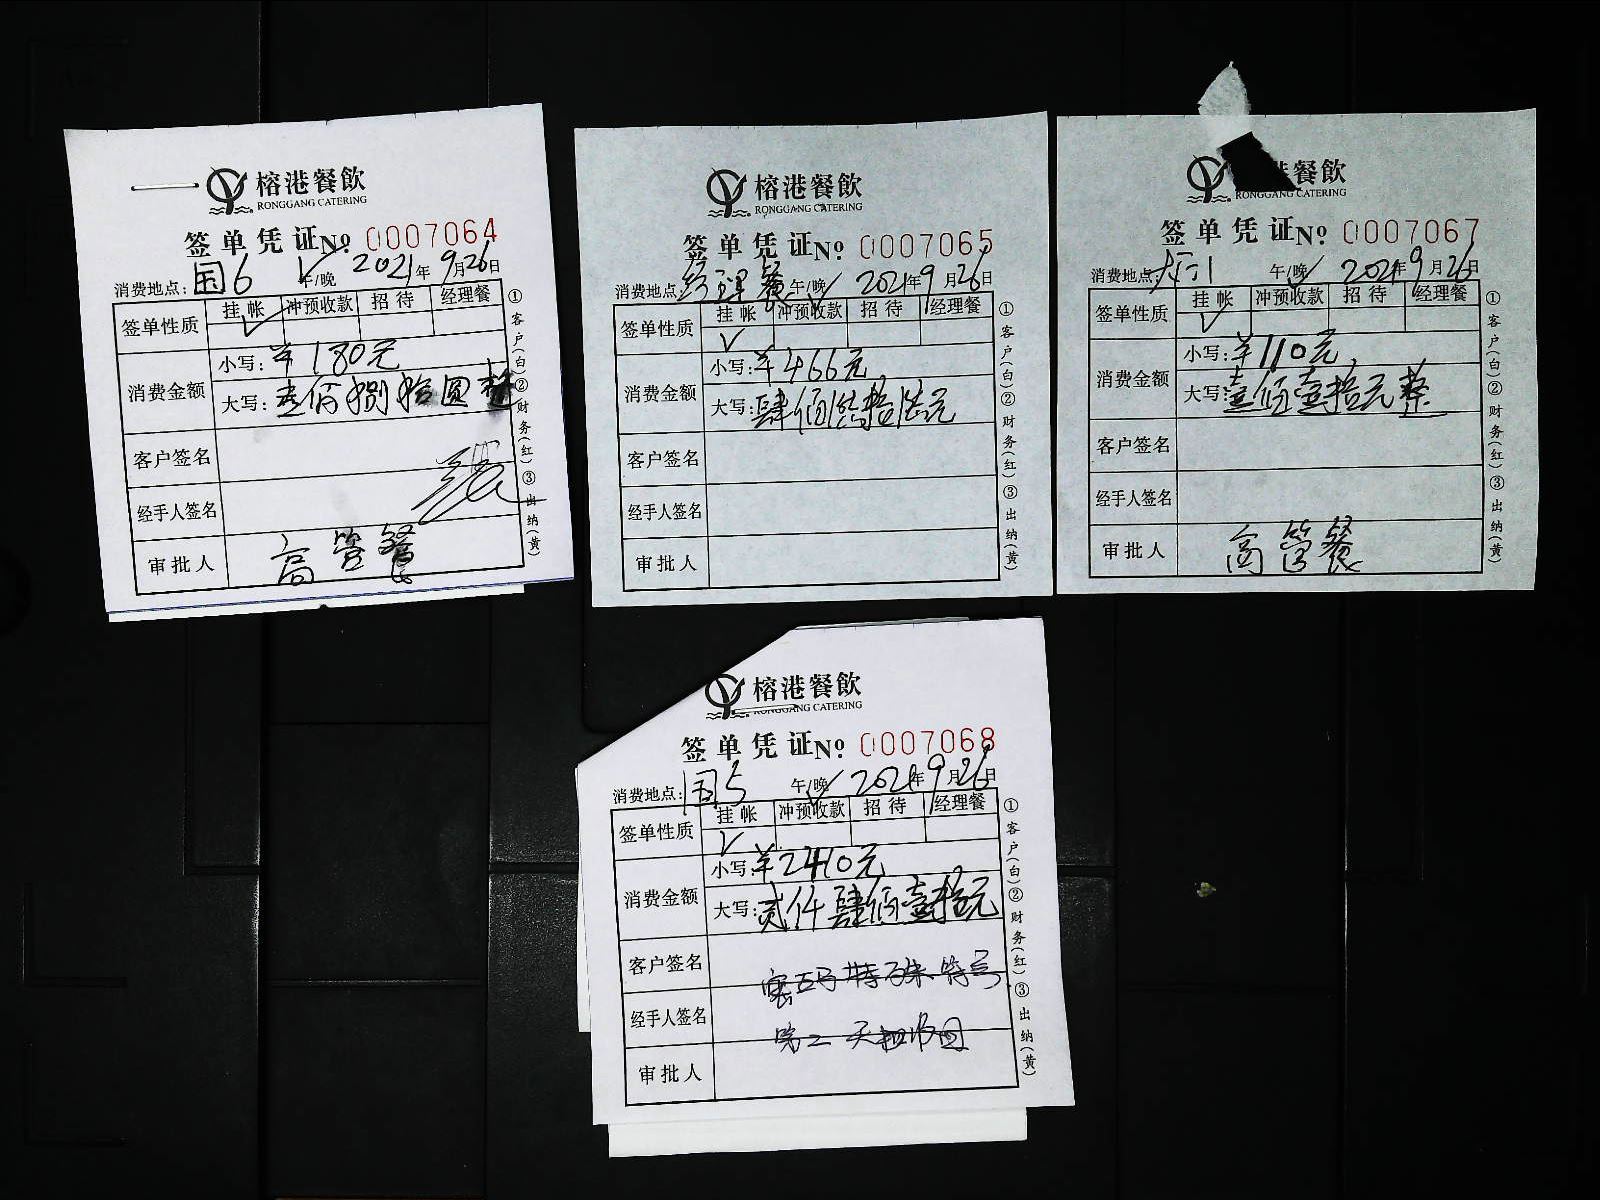 榕港餐飲
RONGGANG CATERING
签单凭证 No 0007064
消费地点：国6 午/晚 2021年9月26日
签单性质 挂帐 冲预收款 招待 经理餐
✓
消费金额 小写：￥180元
大写：壹佰捌拾圆整
客户签名
经手人签名
审批人 高管餐
①客户(白)②财务(红)③出纳(黄)
榕港餐飲
RONGGANG CATERING
签单凭证 No 0007065
消费地点：经理餐 午/晚 2021年9月26日
签单性质 挂帐 冲预收款 招待 经理餐
✓
消费金额 小写：￥466元
大写：肆佰陆拾陆元
客户签名
经手人签名
审批人
①客户(白)②财务(红)③出纳(黄)
餐飲
CATERING
签单凭证 No 0007067
消费地点 午/晚 2021年9月26日
签单性质 挂帐 冲预收款 招待 经理餐
✓
消费金额 小写：￥110元
大写：壹佰壹拾元整
客户签名
经手人签名
审批人 高管餐
①客户(白)②财务(红)③出纳(黄)
榕港餐飲
RONGGANG CATERING
签单凭证 No 0007068
消费地点：国5 午/晚 2021年9月26日
签单性质 挂帐 冲预收款 招待 经理餐
✓
消费金额 小写：￥2410元
大写：贰仟肆佰壹拾元
客户签名 特殊符号
经手人签名
审批人
①客户(白)②财务(红)③出纳(黄)